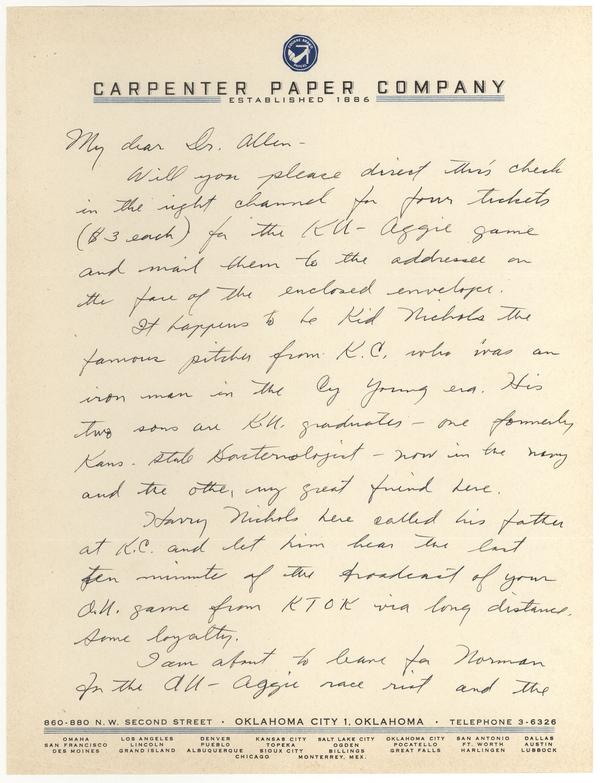 CARPENTER PAPER COMPANY
ESTABLISHED 1886
My dear Dr. Allen -
Will you please direct this check
in the right channel for four tickets
($3 each) for the KU - Aggie game
and mail them to the addressee on
the face of the enclosed envelope.
It happens to be Kid Nichols the
famous pitcher from K.C. who was an
iron man in the Cy Young era. His
two sons are K.U. graduates - one formerly
Kans. State Bacteriologist - now in the navy
and the other, my great friend here.
Harry Nichols here called his father
at K.C. and let him hear the last
ten minute of the broadcast of your
O.U. game from KTOK via long distance.
Some loyalty.
I am about to leave for Norman
for the OU - Aggie race riot and the
860-880 N.W. SECOND STREET • OKLAHOMA CITY 1, OKLAHOMA • TELEPHONE 3-6326
OMAHA LOS ANGELES DENVER KANSAS CITY SALT LAKE CITY OKLAHOMA CITY SAN ANTONIO DALLAS
SAN FRANCISCO LINCOLN PUEBLO TOPEKA OGDEN POCATELLO FT. WORTH AUSTIN
DES MOINES GRAND ISLAND ALBUQUERQUE SIOUX CITY BILLINGS GREAT FALLS HARLINGEN LUBBOCK
CHICAGO MONTERREY, MEX.